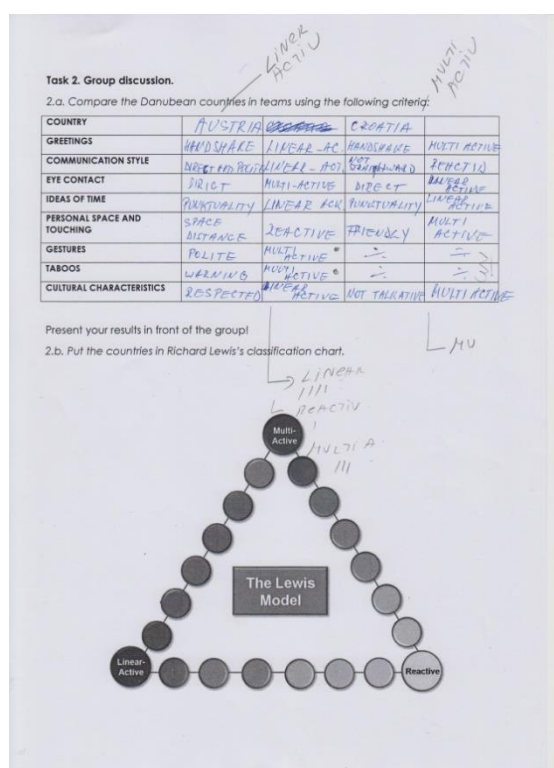 LINER
ACTIV
MULTI
ACTIV
Task 2. Group discussion.
2.a. Compare the Danubean countries in teams using the following criteria:
COUNTRY AUSTRIA CROATIA
GREETINGS HANDSHAKE LINEAR-AC HANDSHAKE MULTI ACTIVE
COMMUNICATION STYLE DIRECT AND POLITE LINEAR-ACT. NOT
EYE CONTACT DIRICT MULTI-ACTIVE DIRECT LINEAR ACTIVE
IDEAS OF TIME PUNKTUALITY LINEAR PUNCTUALITY LINEAR ACTIVE
PERSONAL SPACE AND TOUCHING SPACE DISTANCE REACTIVE FRIENDLY MULTI ACTIVE
GESTURES POLITE MULTI ACTIVE ÷ ÷
TABOOS WARNING MULTI ACTIVE ÷ ÷
CULTURAL CHARACTERISTICS RESPECTED LINEAR ACTIVE NOT TALKATIVE MULTI ACTIVE
Present your results in front of the group!
MU
2.b. Put the countries in Richard Lewis's classification chart.
LINEAR
IIII
REACTIV
I
MULTI A
III
Multi-
Active
The Lewis
Model
Linear-
Active
Reactive